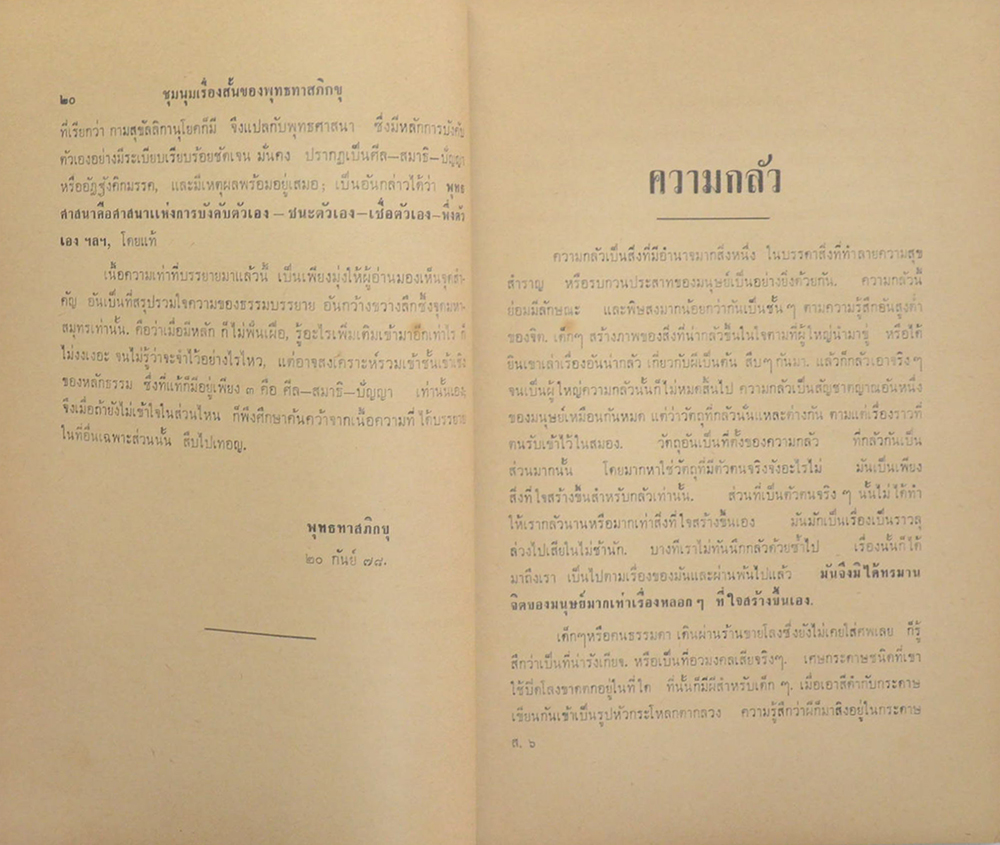 ๒๐ ชุมนุมเรื่องสั้นของพุทธทาสภิกขุ
ที่เรียกว่า กามสุขัลลิกานุโยคก็มี จึงแปลกับพุทธศาสนา ซึ่งมีหลักการบังคับ
ตัวเองอย่างมีระเบียบเรียบร้อยชัดเจน มั่นคง ปรากฏเป็นศีล–สมาธิ–ปัญญา
หรืออัฏฐังคิกมรรค, และมีเหตุผลพร้อมอยู่เสมอ; เป็นอันกล่าวได้ว่า พุทธ
ศาสนาคือศาสนาแห่งการบังคับตัวเอง – ชนะตัวเอง–เชื่อตัวเอง–พึ่งตัว
เอง ฯลฯ, โดยแท้
เนื้อความเท่าที่บรรยายมาแล้วนี้ เป็นเพียงมุ่งให้ผู้อ่านมองเห็นจุดสำ-
คัญ อันเป็นที่สรุปรวมใจความของธรรมบรรยาย อันกว้างขวางลึกซึ้งดุจมหา-
สมุทรเท่านั้น. คือว่าเมื่อมีหลัก ก็ไม่ฟั่นเฝือ, รู้อะไรเพิ่มเติมเข้ามาอีกเท่าไร ก็
ไม่งงเงอะ จนไม่รู้ว่าจะจำไว้อย่างไรไหว, แต่อาจสงเคราะห์รวมเข้าชั้นเข้าเชิง
ของหลักธรรม ซึ่งที่แท้ก็มีอยู่เพียง ๓ คือ ศีล–สมาธิ–ปัญญา เท่านั้นเอง;
จึงเมื่อถ้ายังไม่เข้าใจในส่วนไหน ก็พึงศึกษาค้นคว้าจากเนื้อความที่ ได้บรรยาย
ในที่อื่นเฉพาะส่วนนั้น สืบไปเทอญ.
พุทธทาสภิกขุ
๒๐ กันย์ ๗๘.
ความกลัว
ความกลัวเป็นสิ่งที่มีอำนาจมากสิ่งหนึ่ง ในบรรดาสิ่งที่ทำลายความสุข
สำราญ หรือรบกวนประสาทของมนุษย์เป็นอย่างยิ่งด้วยกัน. ความกลัวนี้
ย่อมมีลักษณะ และพิษสงมากน้อยกว่ากันเป็นชั้น ๆ ตามความรู้สึกอันสูงต่ำ
ของจิต. เด็กๆ สร้างภาพของสิ่งที่น่ากลัวขึ้นในใจตามที่ผู้ใหญ่นำมาขู่ หรือได้
ยินเขาเล่าเรื่องอันน่ากลัว เกี่ยวกับผีเป็นต้น สืบๆ กันมา. แล้วก็กลัวเอาจริงๆ
จนเป็นผู้ใหญ่ความกลัวนั้นก็ไม่หมดสิ้นไป ความกลัวเป็นสัญชาตญาณอันหนึ่ง
ของมนุษย์เหมือนกันหมด แต่ว่าวัตถุที่กลัวนั่นแหละต่างกัน ตามแต่เรื่องราวที่
ตนรับเข้าไว้ในสมอง. วัตถุอันเป็นที่ตั้งของความกลัว ที่กลัวกันเป็น
ส่วนมากนั้น โดยมากหาใช่วัตถุที่มีตัวตนจริงจังอะไรไม่ มันเป็นเพียง
สิ่งที่ใจสร้างขึ้นสำหรับกลัวเท่านั้น. ส่วนที่เป็นตัวตนจริง ๆ นั้นไม่ได้ทำ
ให้เรากลัวนานหรือมากเท่าสิ่งที่ใจสร้างขึ้นเอง มันมักเป็นเรื่องเป็นราวลุ
ล่วงไปเสียในไม่ช้านัก. บางทีเราไม่ทันนึกกลัวด้วยซ้ำไป เรื่องนั้นก็ได้
มาถึงเรา เป็นไปตามเรื่องของมันและผ่านพ้นไปแล้ว มันจึงมิได้ทรมาน
จิตของมนุษย์มากเท่าเรื่องหลอก ๆ ที่ใจสร้างขึ้นเอง.
เด็กๆหรือคนธรรมดา เดินผ่านร้านขายโลงซึ่งยังไม่เคยใส่ศพเลย ก็รู้
สึกว่าเป็นที่น่ารังเกียจ. หรือเป็นที่อวมงคลเสียจริงๆ. เศษกระดาษชนิดที่เขา
ใช้ปิดโลงขาดตกอยู่ในที่ใด ที่นั้นก็มีผีสำหรับเด็ก ๆ. เมื่อเอาสีดำกับกระดาษ
เขียนกันเข้าเป็นรูปหัวกระโหลกตากลวง ความรู้สึกว่าผีก็มาสิงอยู่ในกระดาษ
ส. ๖